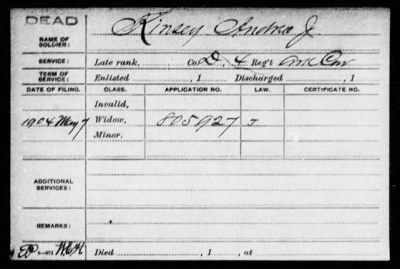 DEAD
NAME OF SOLDIER:
Kinsey Andrew J.
SERVICE:
Late rank, Co. D, 4 Reg't Cav
TERM OF SERVICE:
Enlisted , 1 Discharged , 1
DATE OF FILING. CLASS. APPLICATION NO. LAW. CERTIFICATE NO.
Invalid,
1904 May 7 Widow, 805927
Minor,
ADDITIONAL SERVICES:
REMARKS:
Died , 1 , at